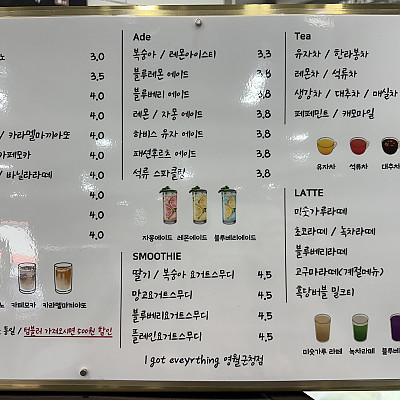 노 3,0
3,5
4,0
/ 카라멜마끼아또 4,0
카페모카 4,0
/ 바닐라라떼 4,0
4,0
4,0
카페모카 카라멜마끼아또
동일 / 텀블러 가져오시면 500원 할인
Ade
복숭아 / 레몬아이스티 3,3
블루레몬 에이드 3,8
블루베리 에이드 3,8
레몬 / 자몽 에이드 3,8
하비스 유자 에이드 3,8
패션후르츠 에이드 3,8
석류 스파클링 3,8
자몽에이드 레몬에이드 블루베리에이드
SMOOTHIE
딸기 / 복숭아 요거트스무디 4,5
망고요거트스무디 4,5
블루베리요거트스무디 4,5
플레인요거트스무디 4,5
I got eveyrthing 영월군청점
Tea
유자차 / 한라봉차
레몬차 / 석류차
생강차 / 대추차 / 매실차
페페민트 / 캐모마일
유자차 석류차 대추차
LATTE
미숫가루라떼
초코라떼 / 녹차라떼
블루베리라떼
고구마라떼(계절메뉴)
흑당버블 밀크티
미숫가루 라떼 녹차라떼 블루베